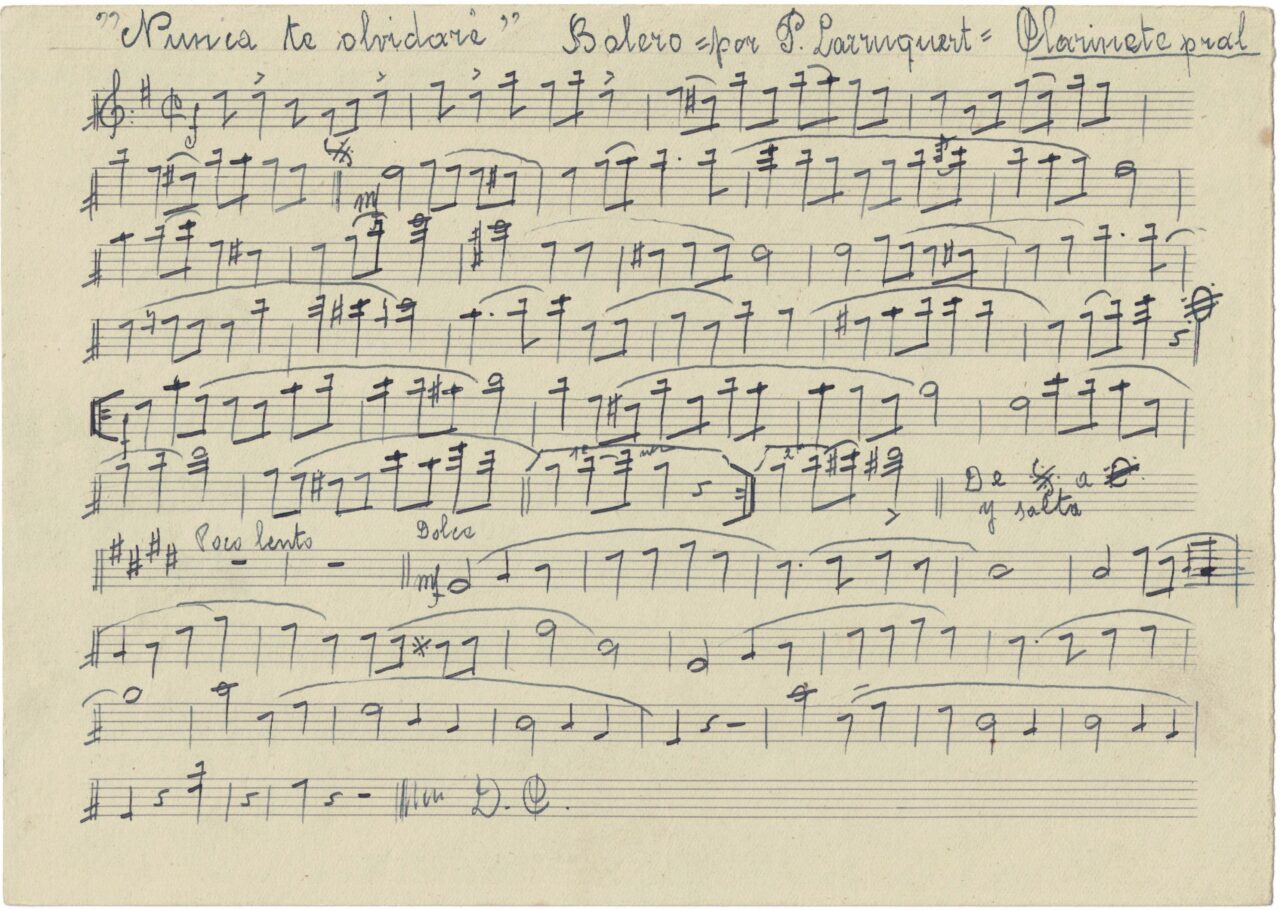 "Nunca te olvidaré" Bolero = por P. Larruquert = Clarinete pral
f
mf
f
1ª vez 2ª
De a
y salta
Poco lento Dolce
mf
D. C.